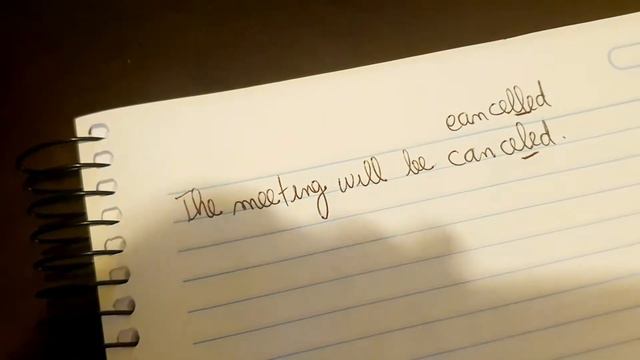 cancelled
The meeting will be canceled.